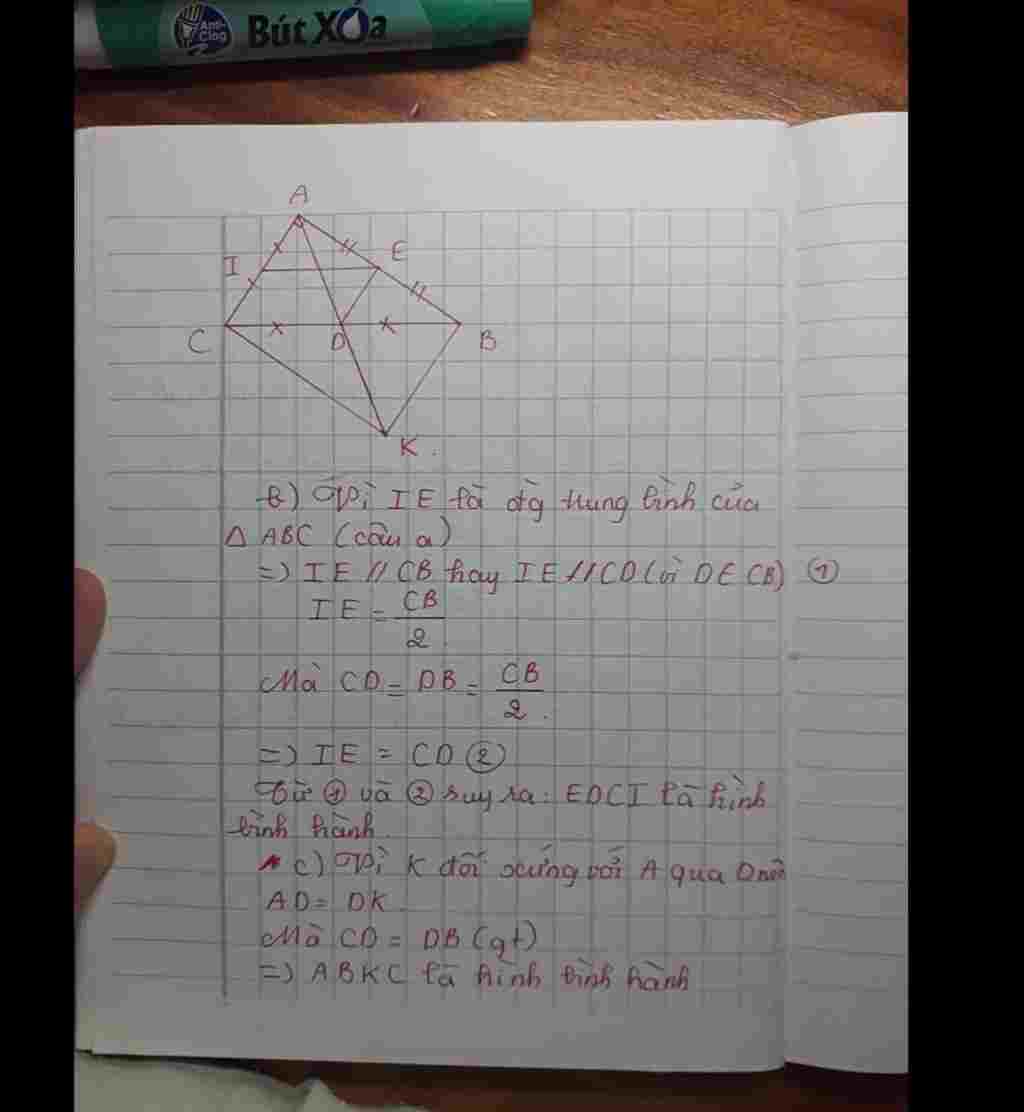 Anti-Clog
Bút XÓa
A
I
E
C
D
B
K.
b) Vì IE là đg trung bình của
Δ ABC (câu a)
=) IE // CB hay IE // CD (vì D ∈ CB) ①
IE = CB/2.
Mà CD = DB = CB/2.
=) IE = CD ②
Từ ① và ② suy ra: EDCI là hình
bình hành.
c) Vì K đối xứng với A qua D nên
AD = DK
Mà CD = DB (gt)
=) ABKC là hình bình hành